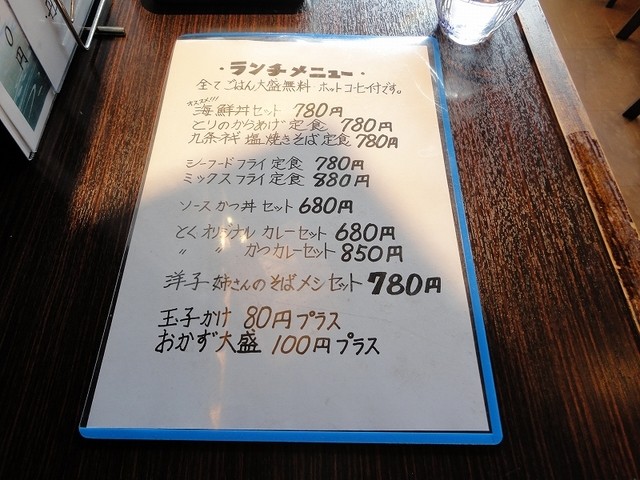 ・ランチメニュー・
全てごはん大盛無料 ホットコーヒー付です。
オススメ!!!
海鮮丼セット 780円
とりのからあげ定食 780円
九条ネギ塩焼きそば定食 780円
シーフードフライ定食 780円
ミックスフライ定食 880円
ソースかつ丼セット 680円
とくオリジナルカレーセット 680円
〃 〃 かつカレーセット 850円
洋子姉さんのそばメシセット 780円
玉子かけ 80円プラス
おかず大盛 100円プラス